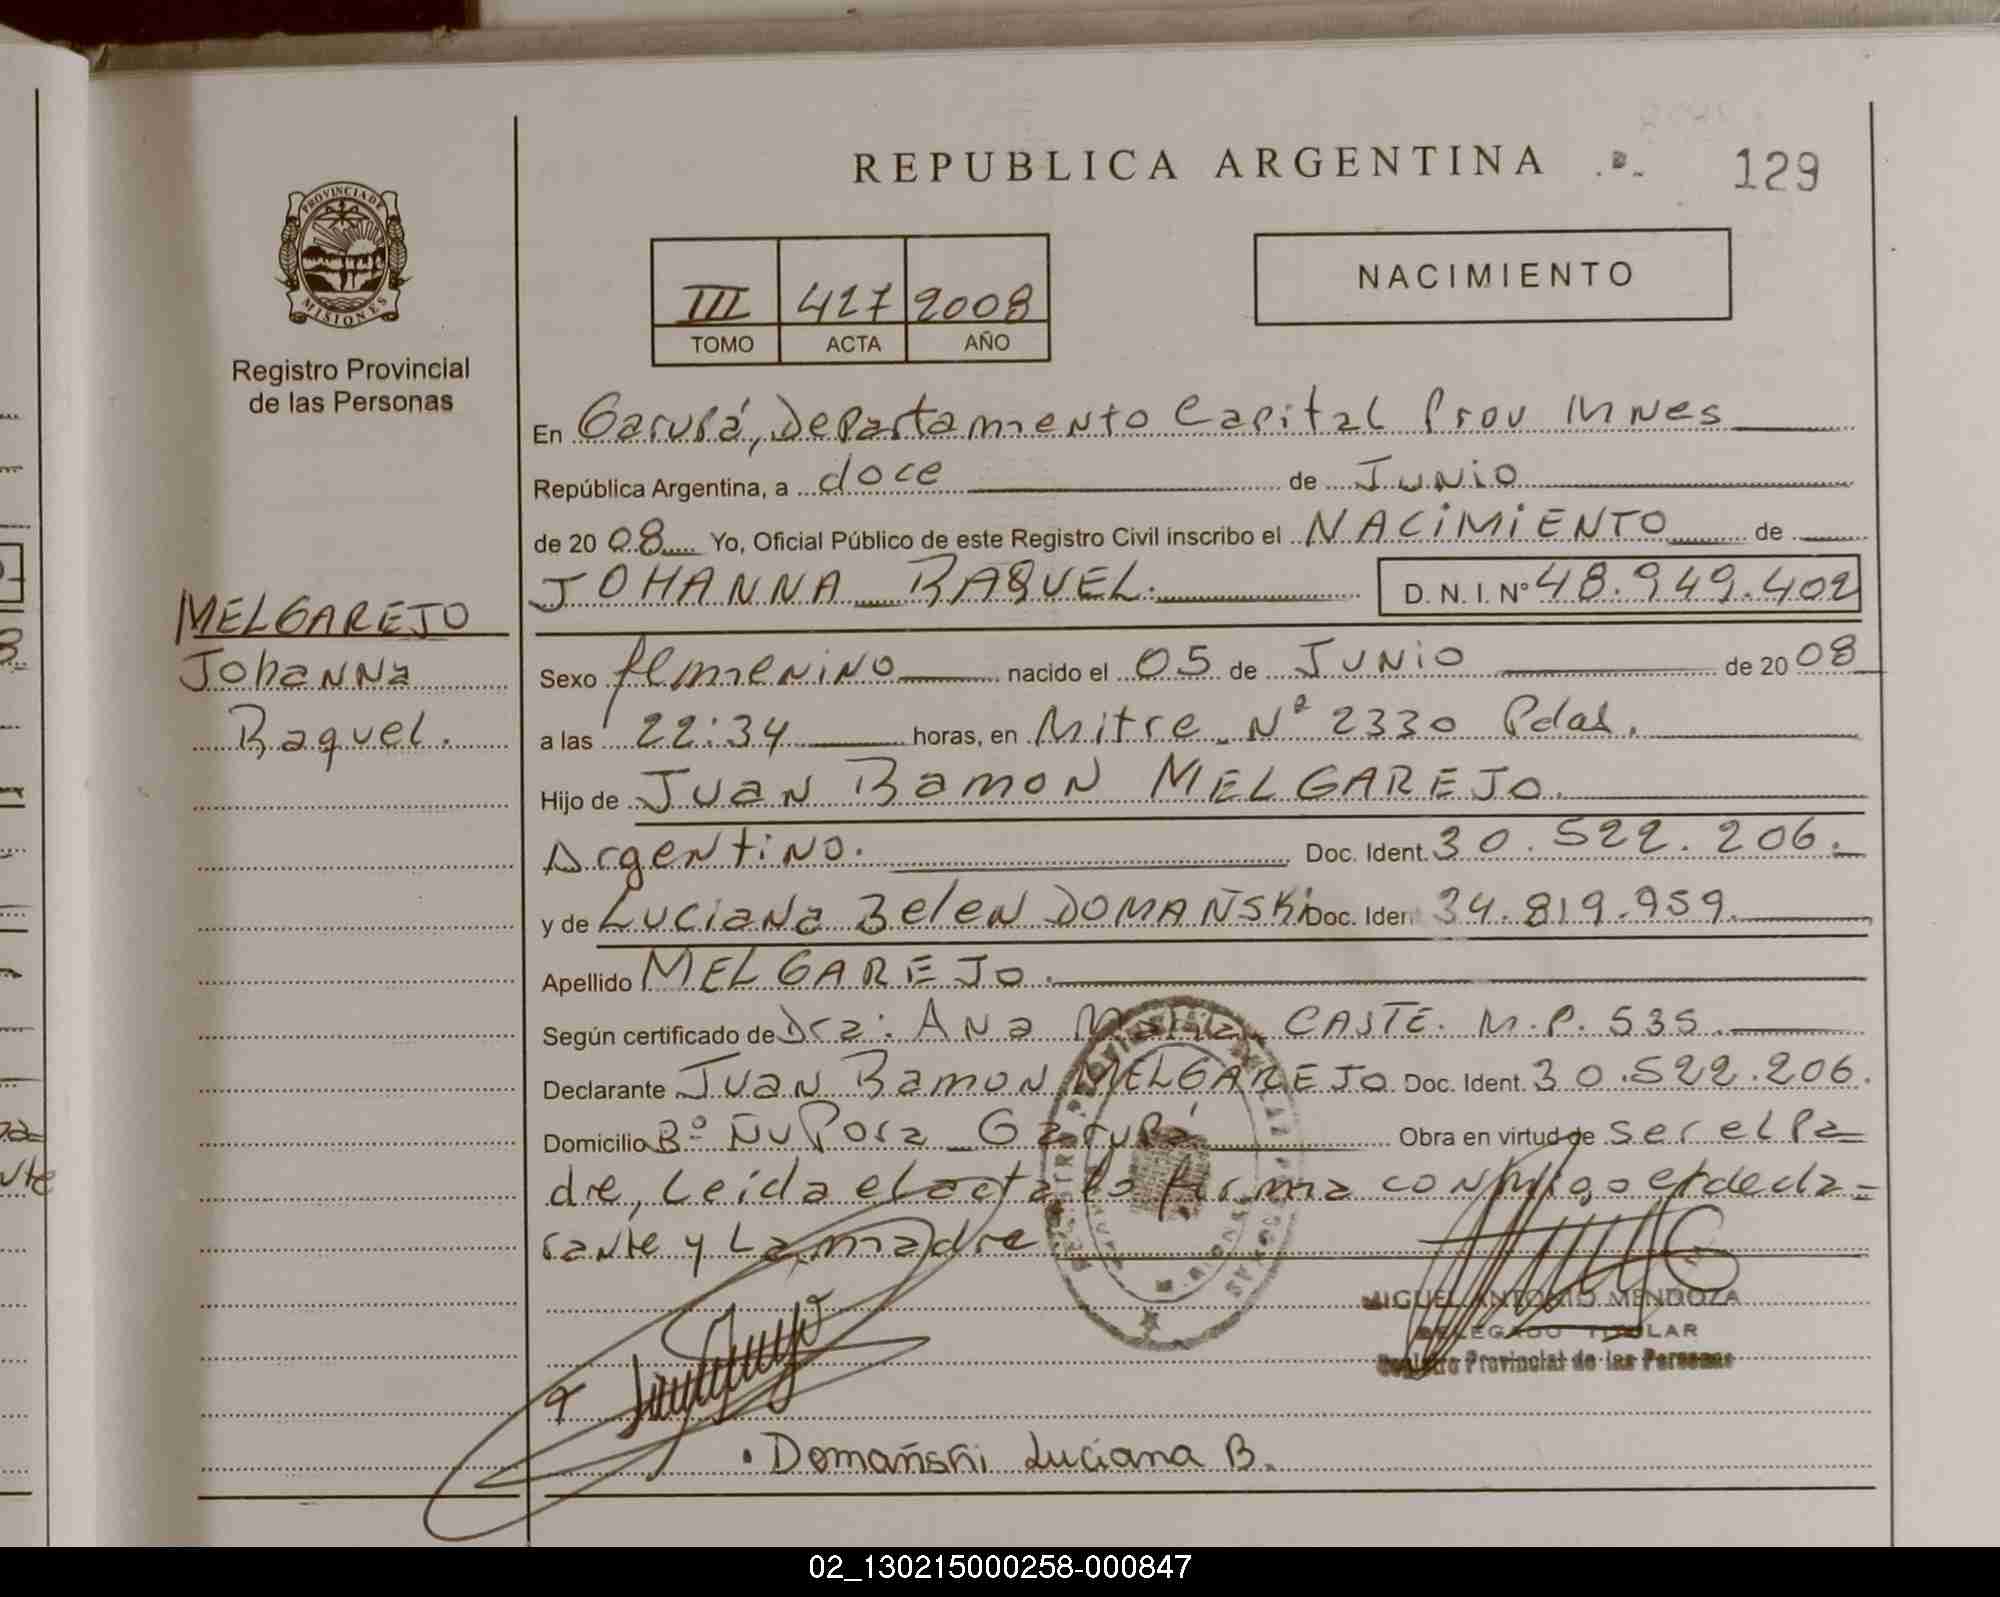 REPUBLICA ARGENTINA
129
PROVINCIA DE
MISIONES
Registro Provincial
de las Personas
III 427 2008
TOMO ACTA AÑO
NACIMIENTO
En Garupá, Departamento Capital Prov Mnes
República Argentina, a doce de Junio
de 2008 Yo, Oficial Público de este Registro Civil inscribo el NACIMIENTO de
JOHANNA RAQUEL. D. N. I. Nº 48.949.402
MELGAREJO
Johanna
Raquel.
Sexo femenino nacido el 05 de Junio de 2008
a las 22:34 horas, en Mitre Nº 2330 Pdas.
Hijo de Juan Ramon MELGAREJO.
Argentino. Doc. Ident. 30.522.206.
y de Luciana Belen DOMAÑSKi Doc. Iden 34.819.959.
Apellido MELGAREJO.
Según certificado de Dra: Ana Maria CASTE. M.P. 535
Declarante Juan Ramon MELGAREJO Doc. Ident. 30.522.206.
Domicilio Bº Ñu Pora Garupá Obra en virtud de ser el Pa
dre, Leida el acta la firma conmigo el decla-
rante y La madre
MIGUEL ANTONIO MENDOZA
DELEGADO TITULAR
Registro Provincial de las Personas
Domañski Luciana B.
02_130215000258-000847